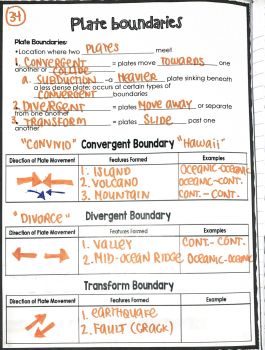 34
Plate boundaries
Plate Boundaries:
•Location where two PLATES meet
1. CONVERGENT = plates move TOWARDS one
another or COLLIDE
a. SUBDUCTION -a HEAVIER plate sinking beneath
a less dense plate; occurs at certain types of
CONVERGENT boundaries
2. DIVERGENT = plates MOVE AWAY or separate
from one another
3. TRANSFORM = plates SLIDE past one
another
"CONVINIO" Convergent Boundary "Hawaii"
Direction of Plate Movement Features Formed Examples
1. ISLAND OCEANIC-OCEANIC
2. VOLCANO OCEANIC-CONT.
3. MOUNTAIN CONT.-CONT.
"DIVORCE" Divergent Boundary
Direction of Plate Movement Features Formed Examples
1. VALLEY CONT.-CONT.
2. MID-OCEAN RIDGE OCEANIC-OCEANIC
Transform Boundary
Direction of Plate Movement Features Formed Example
1. EARTHQUAKE
2. FAULT (CRACK)